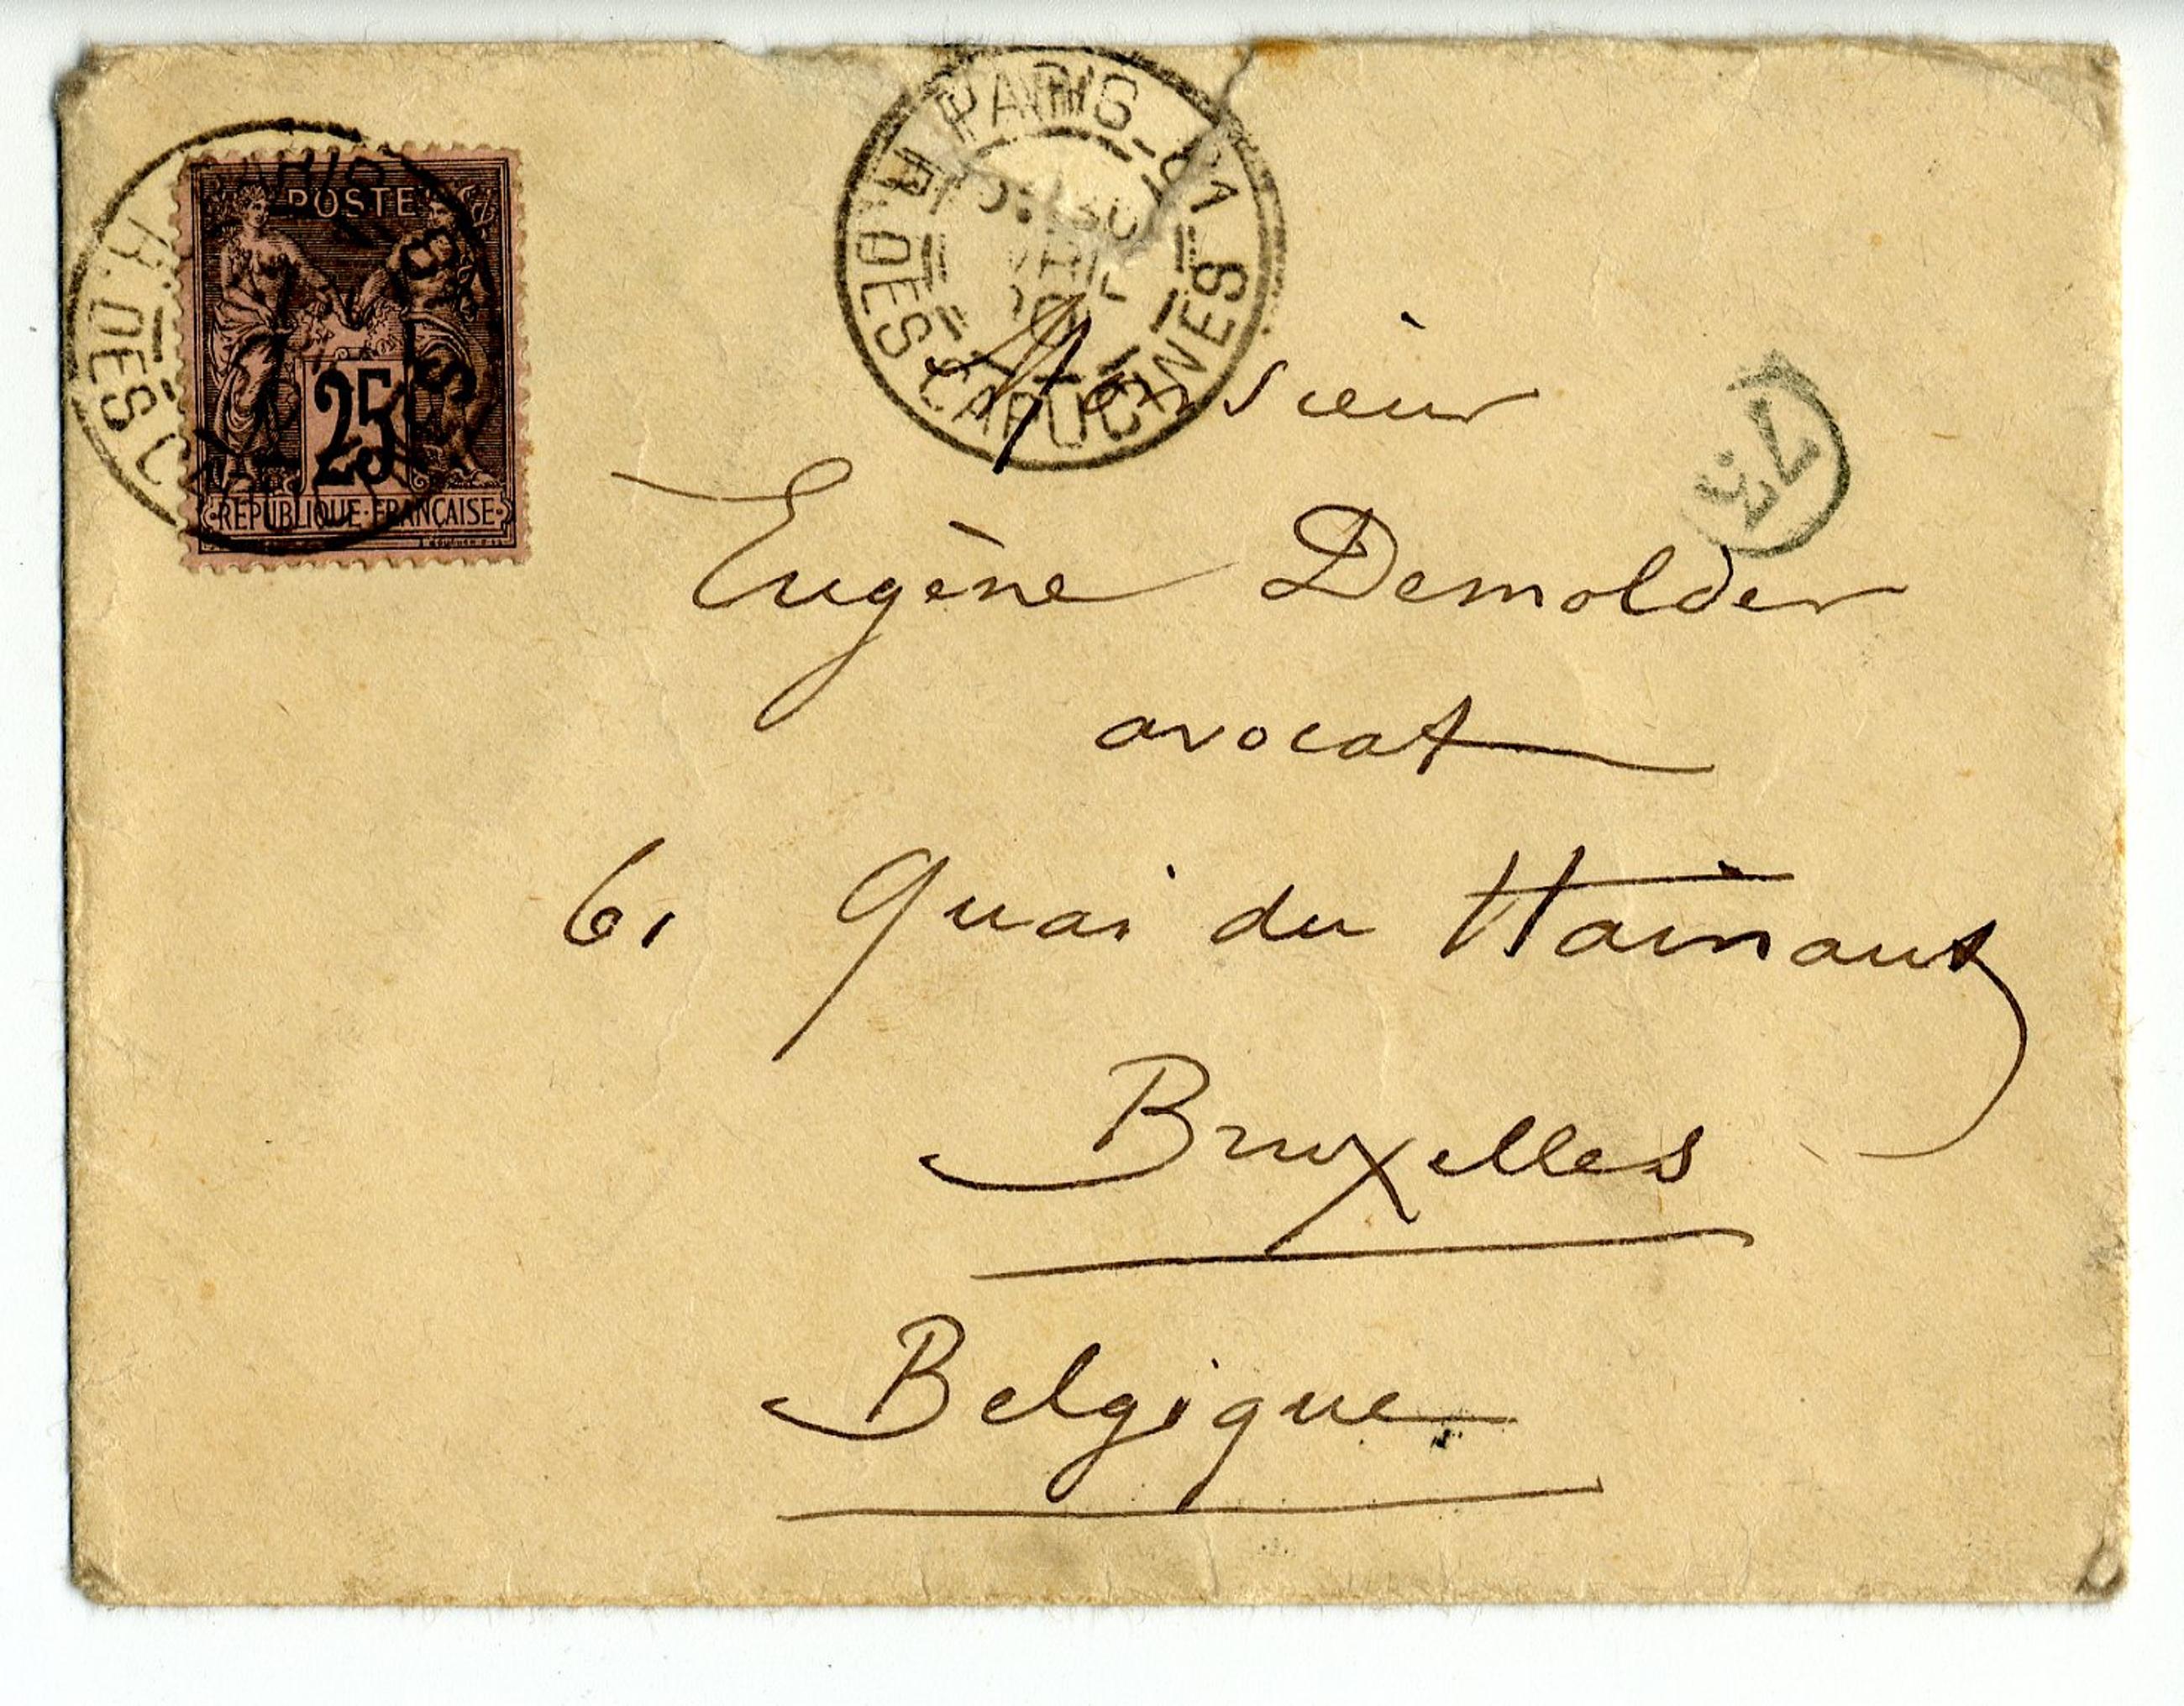 POSTE
25
REPUBLIQUE FRANÇAISE
PARIS
R. DES
PARIS-81
R. DES CAPUCINES
Monsieur
Eugène Demolder
avocat
61 Quai du Hainaut
Bruxelles
Belgique